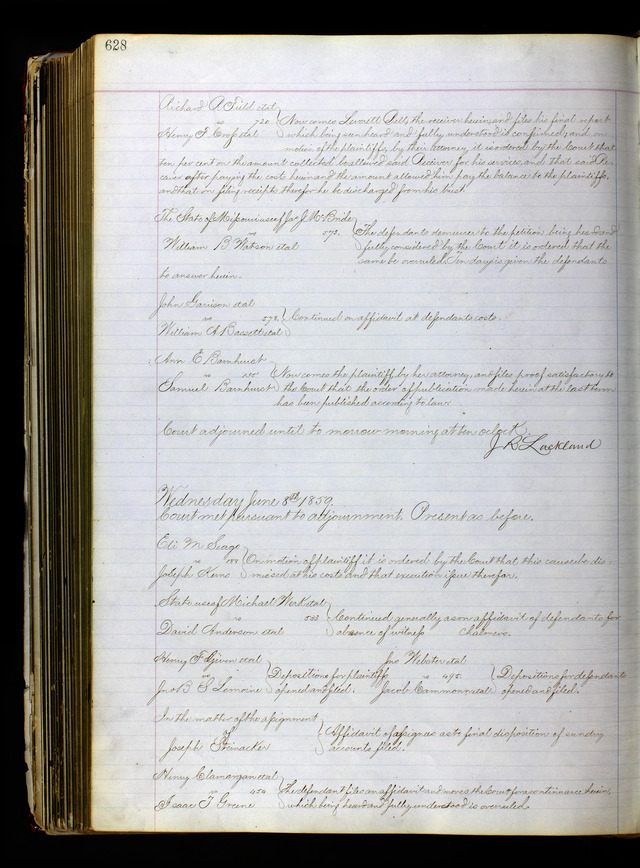 628
Richard A Field etal
vs 720 Now comes Leverett Bell, the receiver herein, and files his final report
Henry T Crof etal which being seen heard and fully understood is confirmed, and on
motion of the plaintiffs, by their Attorney, it is ordered by the Court that
ten per cent on the amount collected be allowed said Receiver for his services, and that said Re-
ceiver after paying the cost herein and the amount allowed him, pay the balance to the plaintiffs,
and that on filing receipts therefor he be discharged from his trust
The State of Missouri use of for J McBride
vs 572. The defendants demurrer to the petition being heard and
William B Watson etal fully considered by the Court it is ordered that the
same be overruled. Ten days is given the defendants
to answer herein.
John Garrison etal
vs 578. Continued on affidavit at defendants costs.
William A Bassett etal
Ann E Barnhurst
vs Now comes the plaintiff by her attorney, and files proof satisfactory to
Samuel Barnhurst the Court that the order of publication made herein at the last term
has been published according to law.
Court adjourned until to morrow morning at ten oclock
J R Lackland
Wednesday June 8th 1859.
Court met pursuant to adjournment. Present as before.
Eli M
vs On motion of plaintiff it is ordered by the Court that this cause be dis-
Joseph missed at his costs and that execution issue therefor.
State use of Michael Work etal
vs 583 Continued generally as on affidavit of defendants for
David Anderson etal absence of witness Chalmers.
Henry T Given etal Jno Webster etal
vs Depositions for plaintiff vs 495. Depositions for defendants
Jno B S Lemoine opened and filed. Jacob Cammon etal opened and filed.
In the matter of the assignment
of Affidavit of assignee as to final disposition of sundry
Joseph Steinacker accounts filed.
Henry Clamorgan etal
vs 454 The defendant files an affidavit and moves the Court for a continuance herein,
Isaac T Greene which being heard and fully understood is overruled.